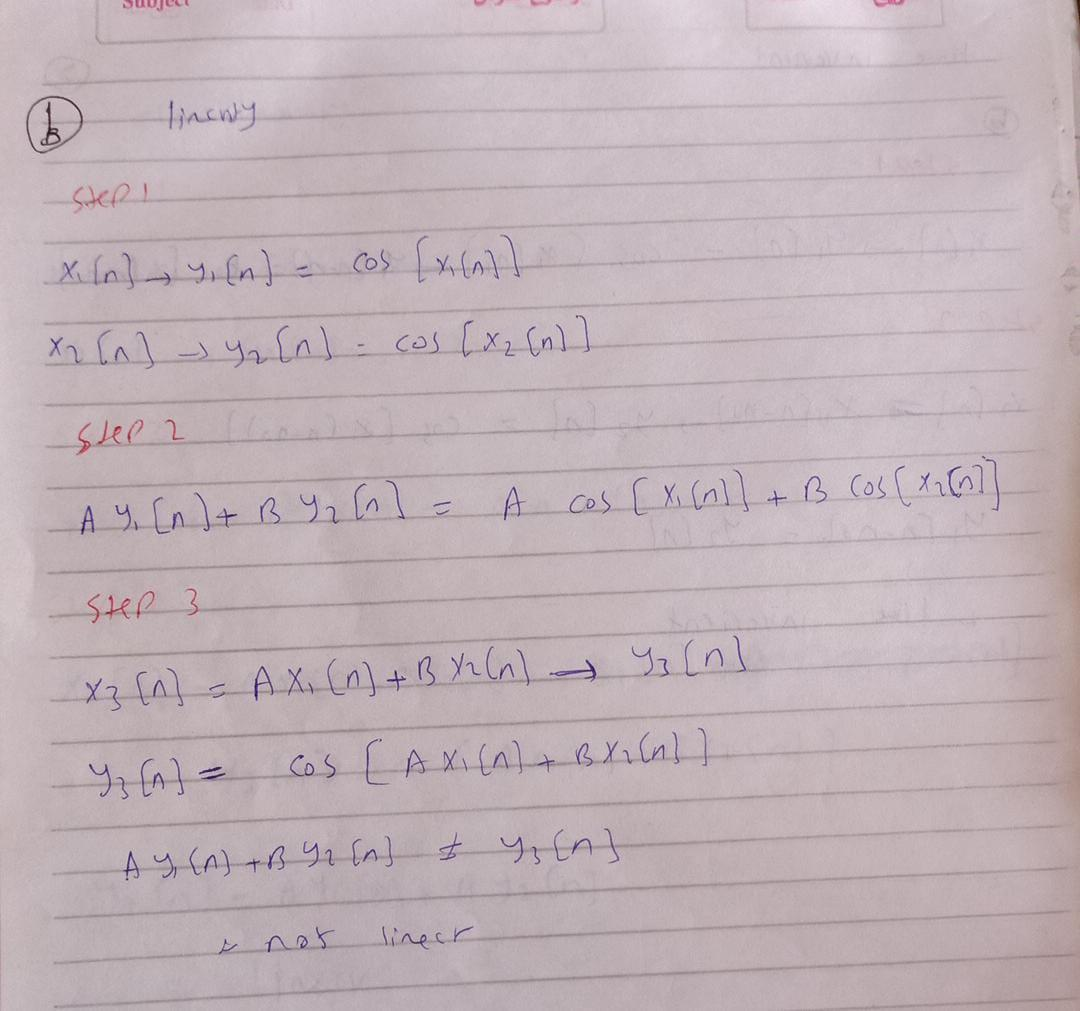 Subject
1
B
linerty
Step 1
x₁[n] → y₁[n] = cos [x₁[n]]
x₂[n] → y₂[n] = cos [x₂[n]]
Step 2
A y₁[n] + B y₂[n] = A cos [x₁[n]] + B cos [x₂[n]]
Step 3
x₃[n] = A x₁[n] + B x₂[n] → y₃[n]
y₃[n] = cos [A x₁[n] + B x₂[n]]
A y₁[n] + B y₂[n] ≠ y₃[n]
not linecr